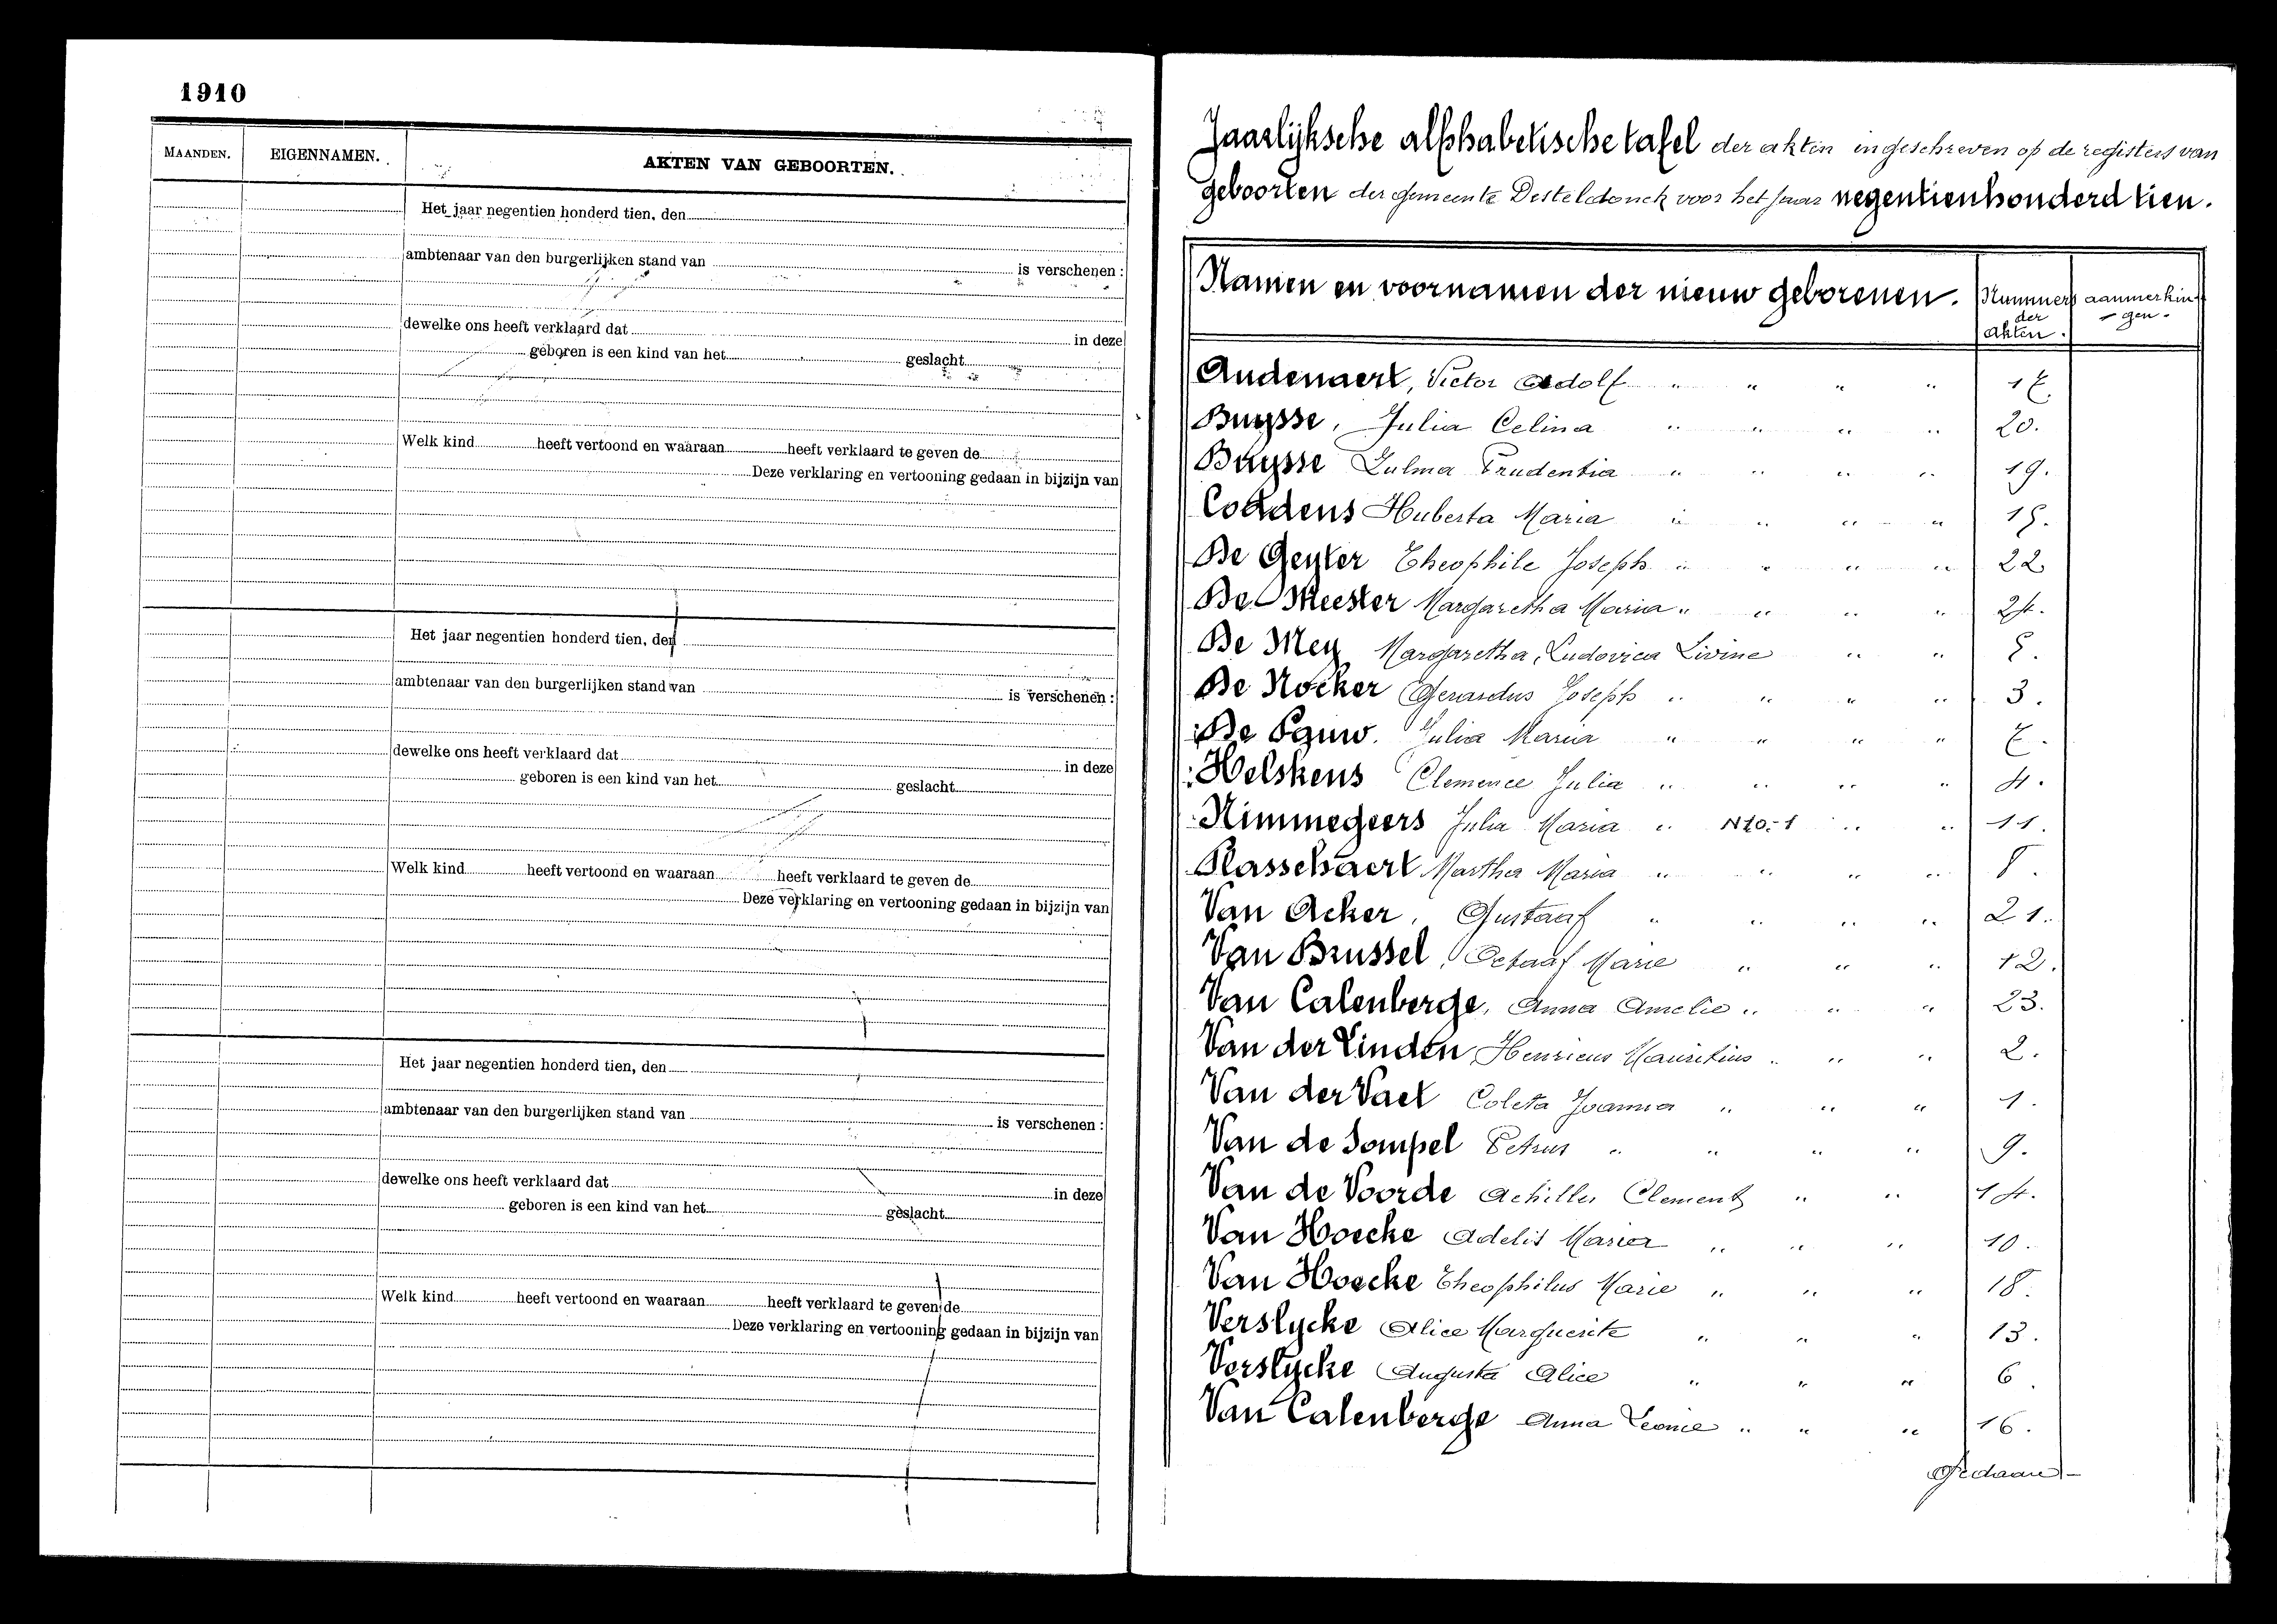 1910
MAANDEN. EIGENNAMEN. AKTEN VAN GEBOORTEN.
Het jaar negentien honderd tien, den
ambtenaar van den burgerlijken stand van is verschenen :
dewelke ons heeft verklaard dat in deze
geboren is een kind van het geslacht
Welk kind heeft vertoond en waaraan heeft verklaard te geven de
Deze verklaring en vertooning gedaan in bijzijn van
Het jaar negentien honderd tien, den
ambtenaar van den burgerlijken stand van is verschenen :
dewelke ons heeft verklaard dat in deze
geboren is een kind van het geslacht
Welk kind heeft vertoond en waaraan heeft verklaard te geven de
Deze verklaring en vertooning gedaan in bijzijn van
Het jaar negentien honderd tien, den
ambtenaar van den burgerlijken stand van is verschenen :
dewelke ons heeft verklaard dat in deze
geboren is een kind van het geslacht
Welk kind heeft vertoond en waaraan heeft verklaard te geven de
Deze verklaring en vertooning gedaan in bijzijn van
Jaarlijksche alphabetische tafel der akten ingeschreven op de registers van
geboorten der gemeente Desteldonck voor het jaar negentienhonderd tien.
Namen en voornamen der nieuw geborenen. Nummers der akten. aanmerkin-gen.
Audenaert, Victor Adolf " " " "
Buysse, Julia Celina " " " " 20.
Buysse Zulma Prudentia " " " " 19.
Huberta Maria " " " " 15.
De Geyter Theophile Joseph " " " " 22
De Meester Margaretha Maria " " " " 24.
De Mey Margaretha, Ludovica Livine " " 5.
De Nocker Gerardus Joseph " " " " 3.
De Pauw. Julia Maria " " " "
Helskens Clemence Julia " " " " 4.
Nimmegeers Julia Maria " N10.-1 " " 11.
Plasschaert Martha Maria " " " " 8.
Van Acker, Gustaaf " " " " 21.
Van Brussel, Octaaf Marie " " " 12.
Van Calenberge, Anna Amelie " " " 23.
Van der Linden Henricus Mauritius " " " 2.
Van der Vaet Coleta Joanna " " " 1.
Van de Sompel Petrus " " " " 9.
Van de Voorde Achilles Clement " " 14.
Van Hoecke Adelis Maria " " " 10.
Van Hoecke Theophilus Marie " " " 18.
Verslycke Alice Marguerite " " " 13.
Verslycke Augusta Alice " " " 6.
Van Calenberge Anna Leonie " " " 16.
Gedaan-